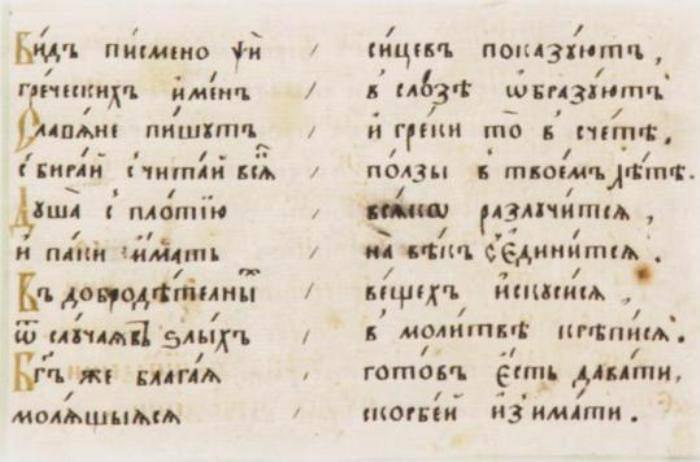 Ви́дъ пи́смено ѱѝ / си́цевъ показꙋ́ютъ,
гре́ческихъ и҆ме́нъ / в сло́зѣ ѡ҆бразꙋ́ютъ
Славѧ́не пи́шꙋтъ / и҆ гре́ки то̀ в сче́тѣ.
с̾бира́й с̾чита́й всѧ̑ / по́лзы в твое́мъ лѣ́тѣ.
Дꙋша̀ с̾ пло́тїю / всѧ́кѡ разлꙋчи́тсѧ,
и҆ па́ки и҆́мать / на̀ вѣ́къ с̾едини́тсѧ.
Въ добродѣ́телны / ве́щехъ и҆скꙋси́сѧ,
ѿ слꙋ́чаѧвъ ѕлы́хъ / в моли́твѣ крѣпи́сѧ.
Бг҃ъ же блага́ѧ / гото́въ є҆́сть дава́ти,
молѧ́щыѧсѧ / скорбе́й и҆з̾има́ти.